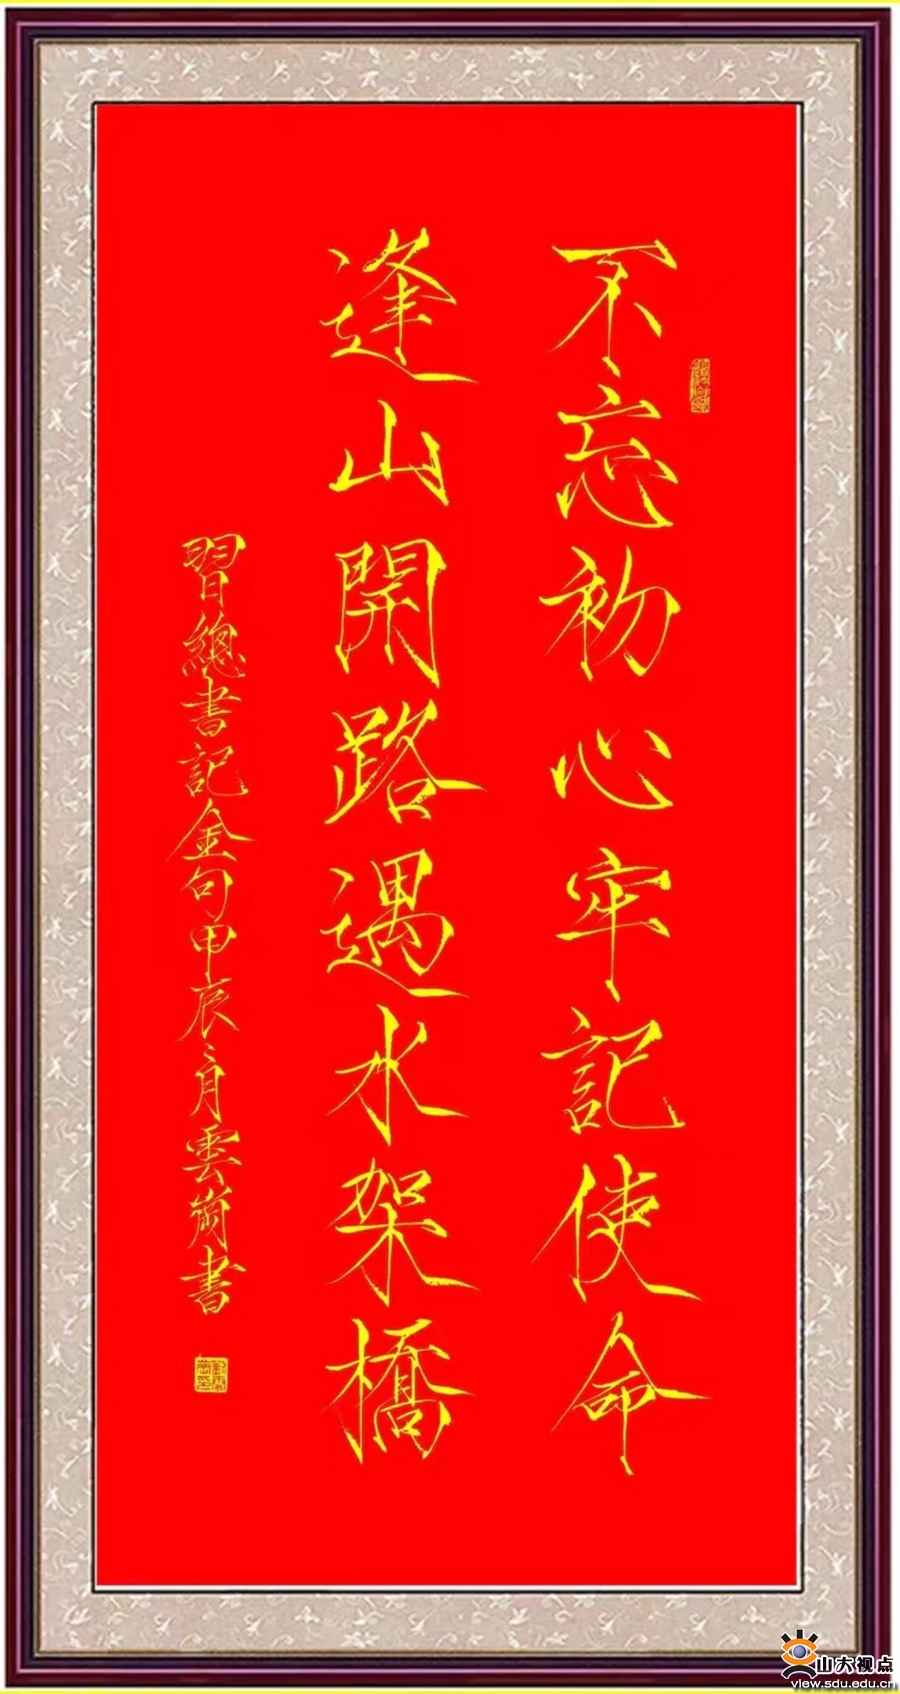 不忘初心牢記使命
逢山開路遇水架橋
習總書記金句甲辰二月雲崗書
山大视点
view.sdu.edu.cn